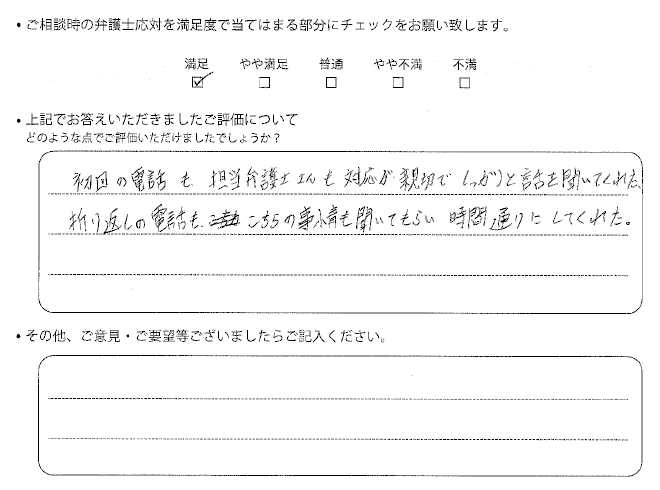 ・ご相談時の弁護士応対を満足度で当てはまる部分にチェックをお願い致します。
満足 やや満足 普通 やや不満 不満
☑ □ □ □ □
・上記でお答えいただきましたご評価について
どのような点でご評価いただけましたでしょうか?
初回の電話も 担当弁護士さんも対応が親切でしっかりと話を聞いてくれた。
折り返しの電話も、こちらの事情も聞いてもらい時間通りにしてくれた。
・その他、ご意見・ご要望等ございましたらご記入ください。